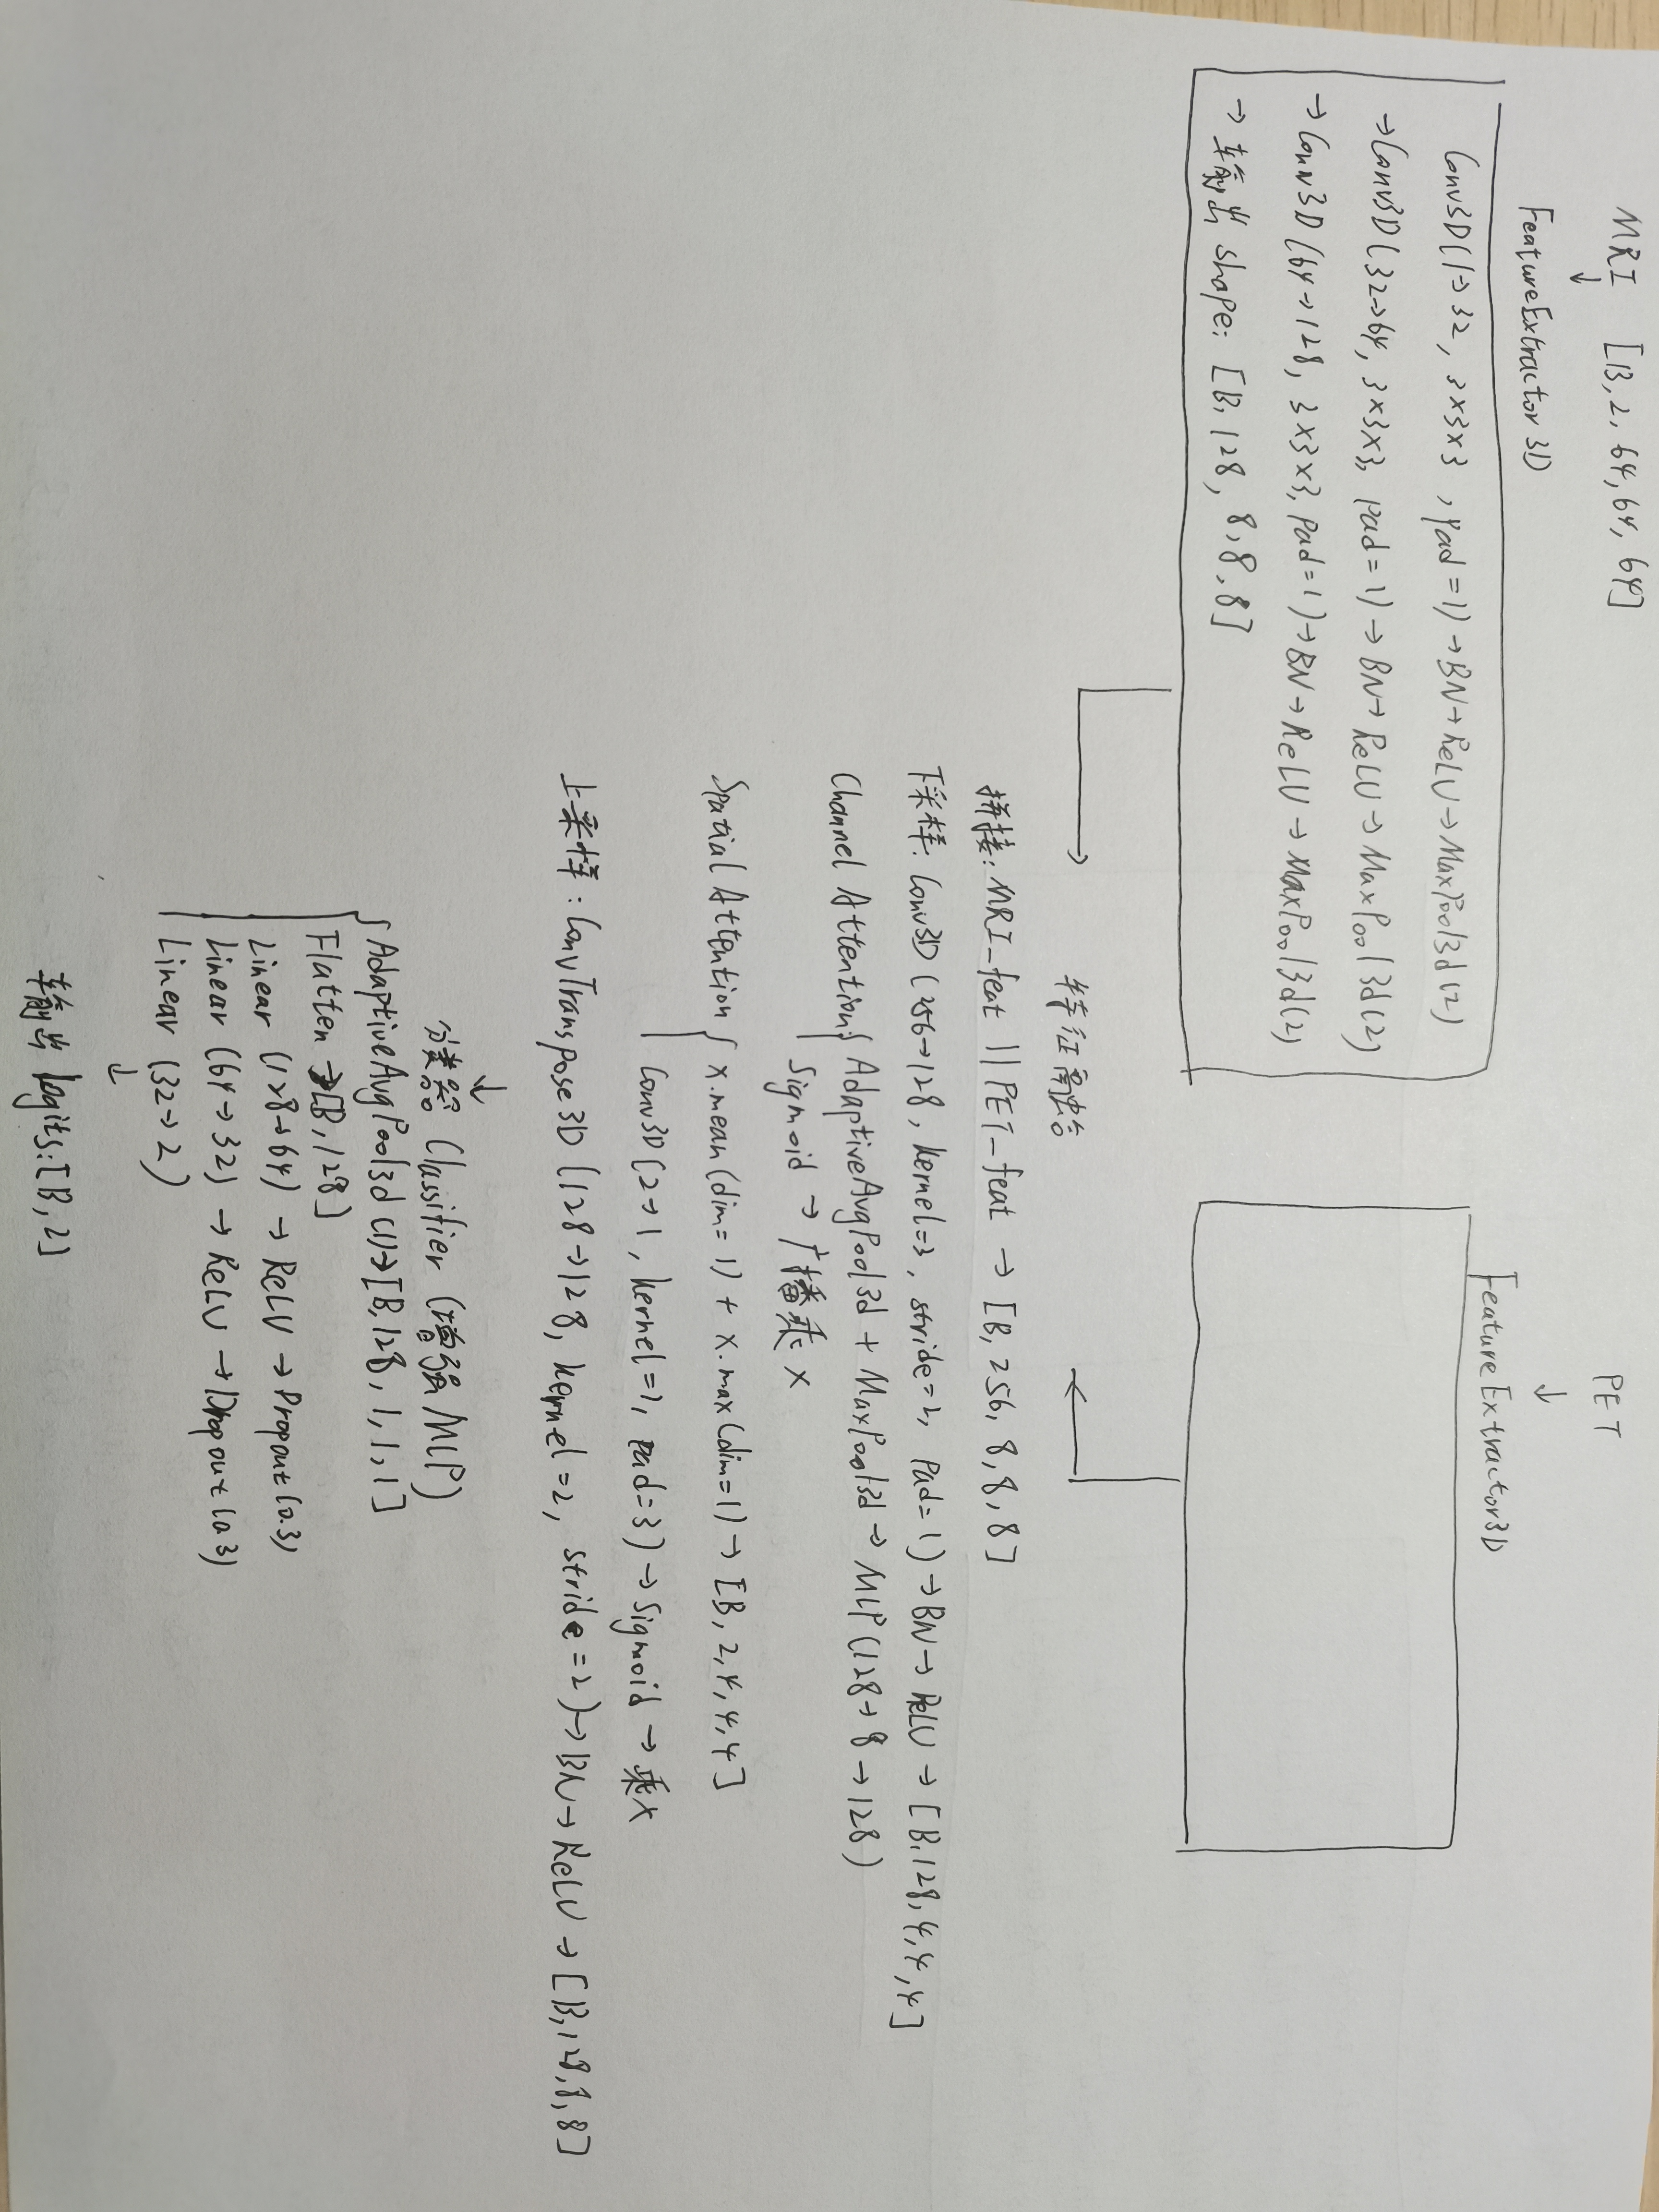 MRI [B, 2, 64, 64, 64]
↓
FeatureExtractor 3D
Conv3D(1→32, 3×3×3, pad=1)→BN→ReLU→MaxPool3d(2)
→Conv3D(32→64, 3×3×3, pad=1)→BN→ReLU→MaxPool3d(2)
→Conv3D(64→128, 3×3×3, pad=1)→BN→ReLU→MaxPool3d(2)
→输出 shape: [B, 128, 8, 8, 8]
PET
↓
FeatureExtractor3D
特征融合
拼接: MRI_feat || PET_feat → [B, 256, 8, 8, 8]
下采样: Conv3D (256→128, kernel=3, stride=2, pad=1)→BN→ReLU→[B, 128, 4, 4, 4]
Channel Attention{ AdaptiveAvgPool3d + MaxPool3d→MLP(128→8→128)
Sigmoid → 广播乘 x
Spatial Attention{ x.mean(dim=1) + x.max(dim=1)→[B, 2, 4, 4, 4]
Conv3D(2→1, kernel=7, pad=3)→Sigmoid→乘x
上采样: ConvTranspose3D (128→128, kernel=2, stride=2)→BN→ReLU→[B, 128, 8, 8]
↓
分类器 Classifier (增强MLP)
{ AdaptiveAvgPool3d (1)→[B, 128, 1, 1, 1]
Flatten →[B, 128]
Linear (128→64) → ReLU → Dropout(0.3)
Linear (64→32) → ReLU → Dropout(0.3)
Linear (32→2)
↓
输出 logits: [B, 2]